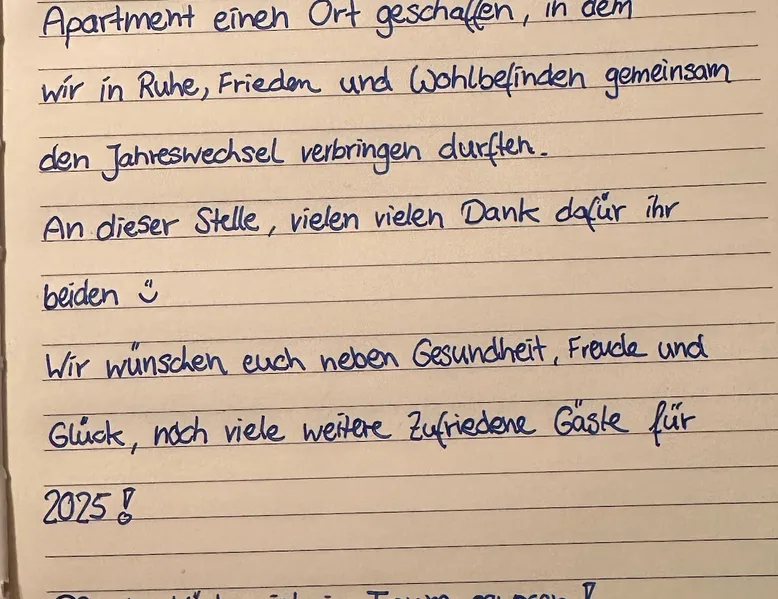 Apartment einen Ort geschaffen, in dem
wir in Ruhe, Frieden und Wohlbefinden gemeinsam
den Jahreswechsel verbringen durften.
An dieser Stelle, vielen vielen Dank dafür ihr
beiden ü
Wir wünschen euch neben Gesundheit, Freude und
Glück, noch viele weitere Zufriedene Gäste für
2025!